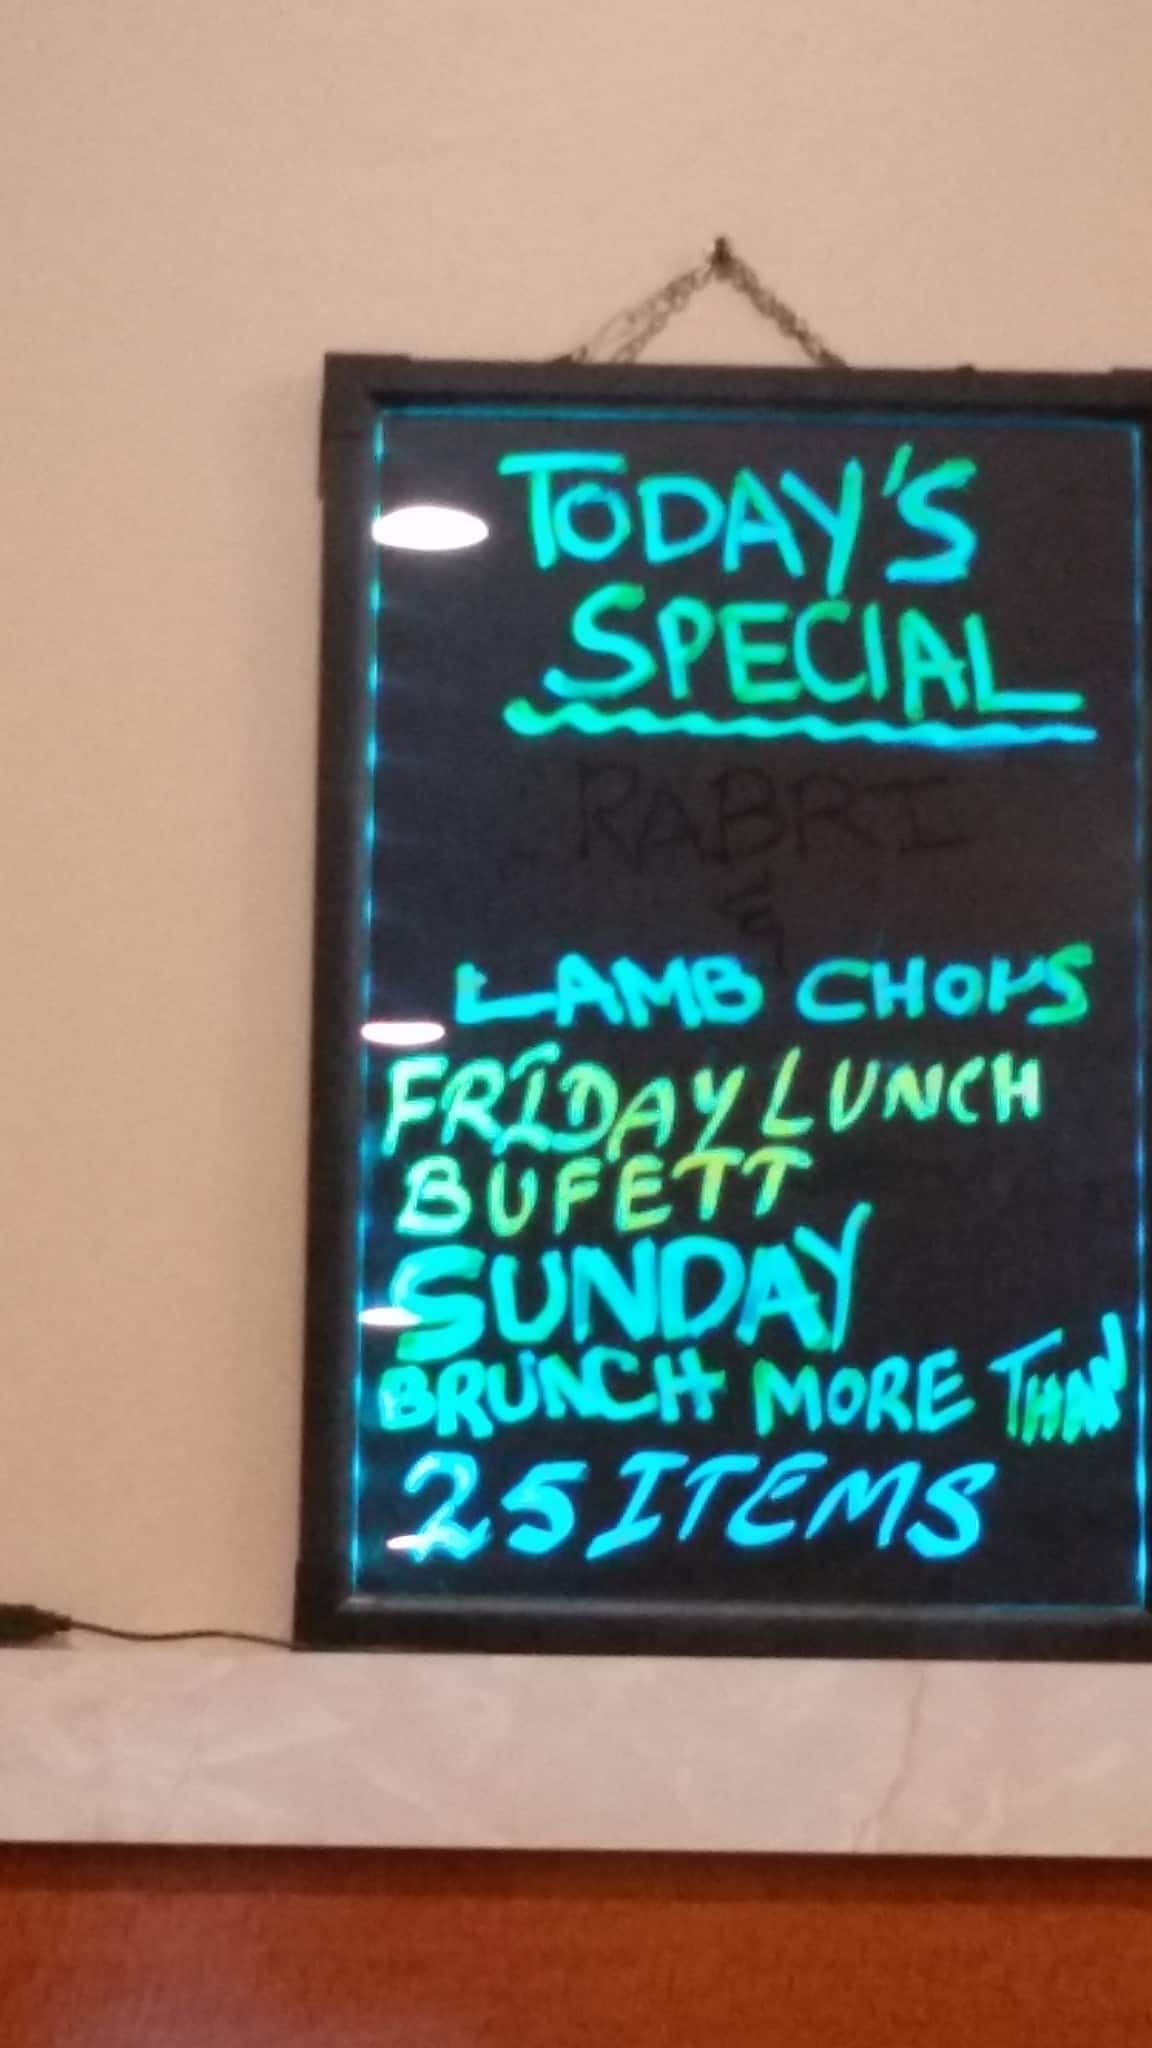 TODAY'S
SPECIAL
RABRI
&
LAMB CHOPS
FRIDAY LUNCH
BUFETT
SUNDAY
BRUNCH MORE THAN
25 ITEMS